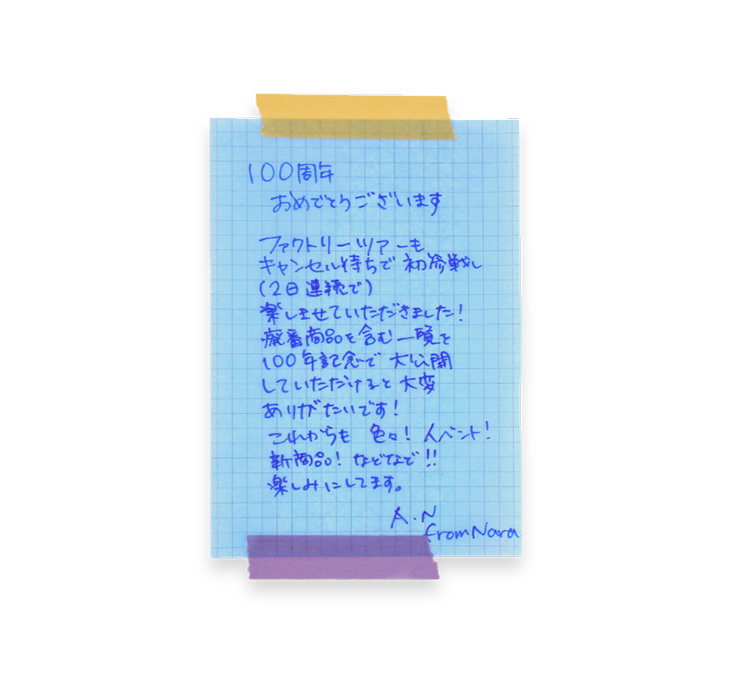 100周年
おめでとうございます
ファクトリーツアーも
キャンセル待ちで 初参戦し
(2日連続で)
楽しませていただきました!
廃番商品を含む一覧を
100年記念で 大公開
していただけると 大変
ありがたいです!
これからも 色々! イベント!
新商品! などなど!!
楽しみにしてます。
A.N
from Nara